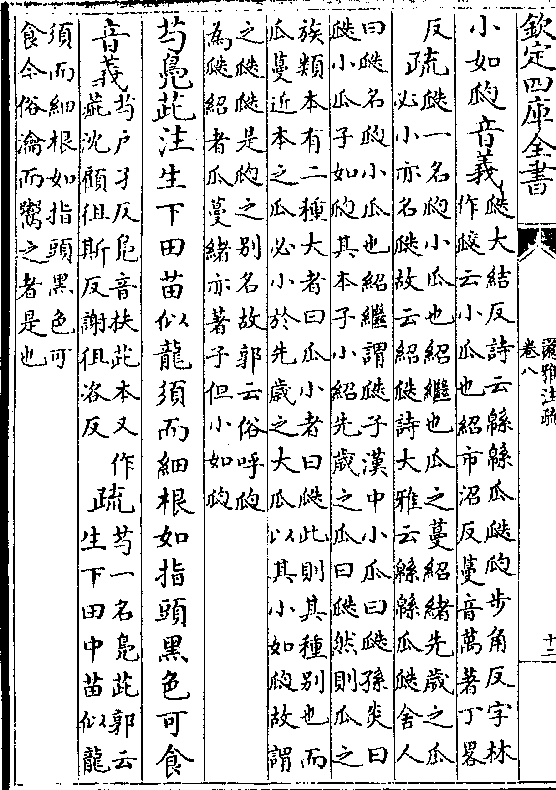 欽定四庫全書
爾雅注疏
卷八
十二
小如瓝音義
瓞大結反詩云緜緜瓜瓞瓝步角反字林
作㼎云小瓜也紹市沼反蔓音萬著丁畧
反疏
瓞一名瓝小瓜也紹繼也瓜之蔓紹緒先歲之瓜
必小亦名瓞故云紹瓞詩大雅云緜緜瓜瓞舍人
曰瓞名瓝小瓜也紹繼謂瓞子漢中小瓜曰瓞孫炎曰
瓞小瓜子如瓝其本子小紹先歲之瓜曰瓞然則瓜之
族類本有二種大者曰瓜小者曰瓞此則其種别也而
瓜蔓近本之瓜必小於先歲之大瓜以其小如瓝故謂
之瓞瓞是瓝之别名故郭云俗呼瓝
為瓞紹者瓜蔓緒亦著子但小如瓝
芍鳧茈注生下田苗似龍須而細根如指頭黑色可食
音義
芍户了反鳧音扶茈本又作
沈顧徂斯反謝徂洛反
疏
芍一名鳧茈郭云
生下田中苗似龍
須而細根如指頭黑色可
食今俗瀹而鬻之者是也